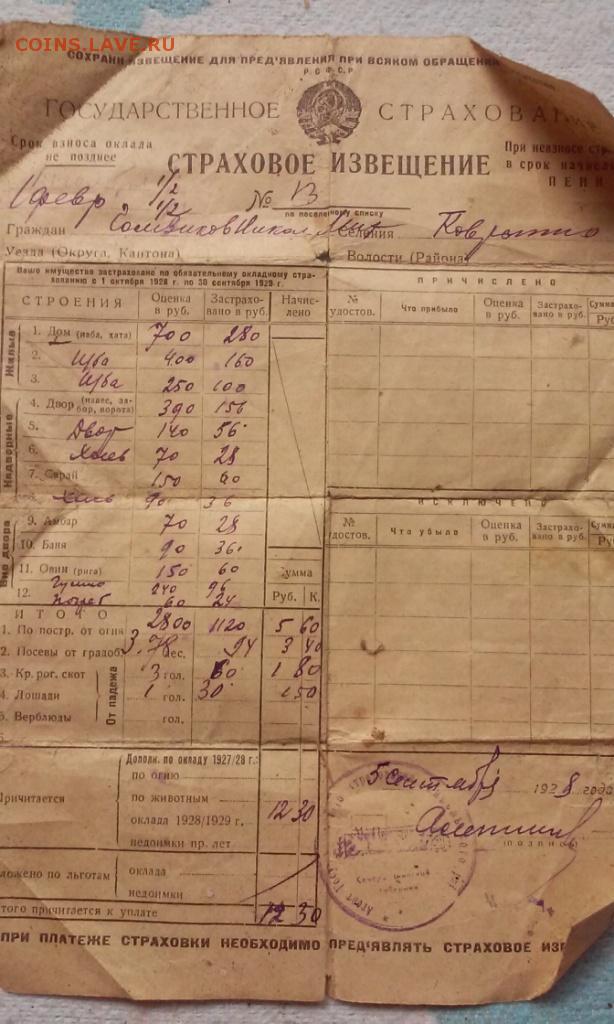 COINS.LAVE.RU
СОХРАНИ ИЗВЕЩЕНИЕ ДЛЯ ПРЕД'ЯВЛЕНИЯ ПРИ ВСЯКОМ ОБРАЩЕНИ
Р.С.Ф.С.Р
ГОСУДАРСТВЕННОЕ СТРАХОВАНИ
Срок взноса оклада
не позднее
При невзносе стра
в срок начисл
ПЕНИ
СТРАХОВОЕ ИЗВЕЩЕНИЕ
1 февр 1/2
1/2
№ 13
по поселенному списку
Граждан Николай Селения
Уезда (Округа, Кантона) Волости (Района)
Ваше имущество застраховано по обязательному окладному стра-
хованию с 1 октября 1928 г. по 30 сентября 1929 г.
СТРОЕНИЯ Оценка в руб. Застрахо-вано в руб. Начис-лено
Жилые
1. Дом (изба, хата) 700 280
2. Изба 400 160
3. Изба 250 100
Надворные
4. Двор (навес, за-бор, ворота) 390 156
5. Двор 140 56
6. Хлев 70 28
7. Сарай 150 60
8. Хлев 90 36
Вне двора
9. Амбар 70 28
10. Баня 90 36
11. Овин (рига) 150 60
12. Гумно 240 96
Погреб 60 24
Сумма
Руб. К.
ИТОГО 2800 1120
1. По постр. от огня 5 60
2. Посевы от градоб. 3.78 дес. 94 3 40
От падежа
3. Кр. рог. скот 3 гол. 60 1 80
4. Лошади 1 гол. 30 1 50
5. Верблюды гол.
6.
ПРИЧИСЛЕНО
№ удостов. Что прибыло Оценка в руб. Застрахо-вано в руб. Сумма
Руб
ИСКЛЮЧЕНО
№ удостов. Что убыло Оценка в руб. Застрахо-вано в руб. Сумма
Руб
Причитается
Дополн. по окладу 1927/28 г.:
по огню
по животным
оклада 1928/1929 г. 12 30
недоимки пр. лет
ложено по льготам
оклада
недоимки
того причитается к уплате 12 30
5 сентября 1928 года
(подпись)
Агент Гос
губернии
ПРИ ПЛАТЕЖЕ СТРАХОВКИ НЕОБХОДИМО ПРЕД'ЯВЛЯТЬ СТРАХОВОЕ ИЗВ